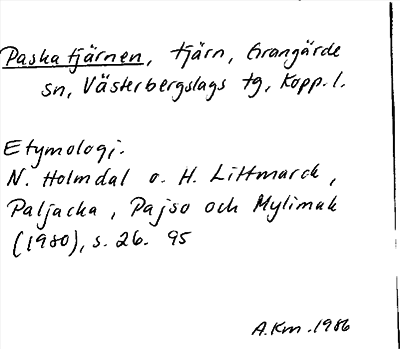 Paskatjärnen, tjärn, Grangärde
sn, Västerbergslags tg, Kopp. l.
Etymologi.
N. Holmdal o. H. Littmarck,
Paljacka, Pajso och Mylimak
(1980), s. 26. 95
A.Km. 1986